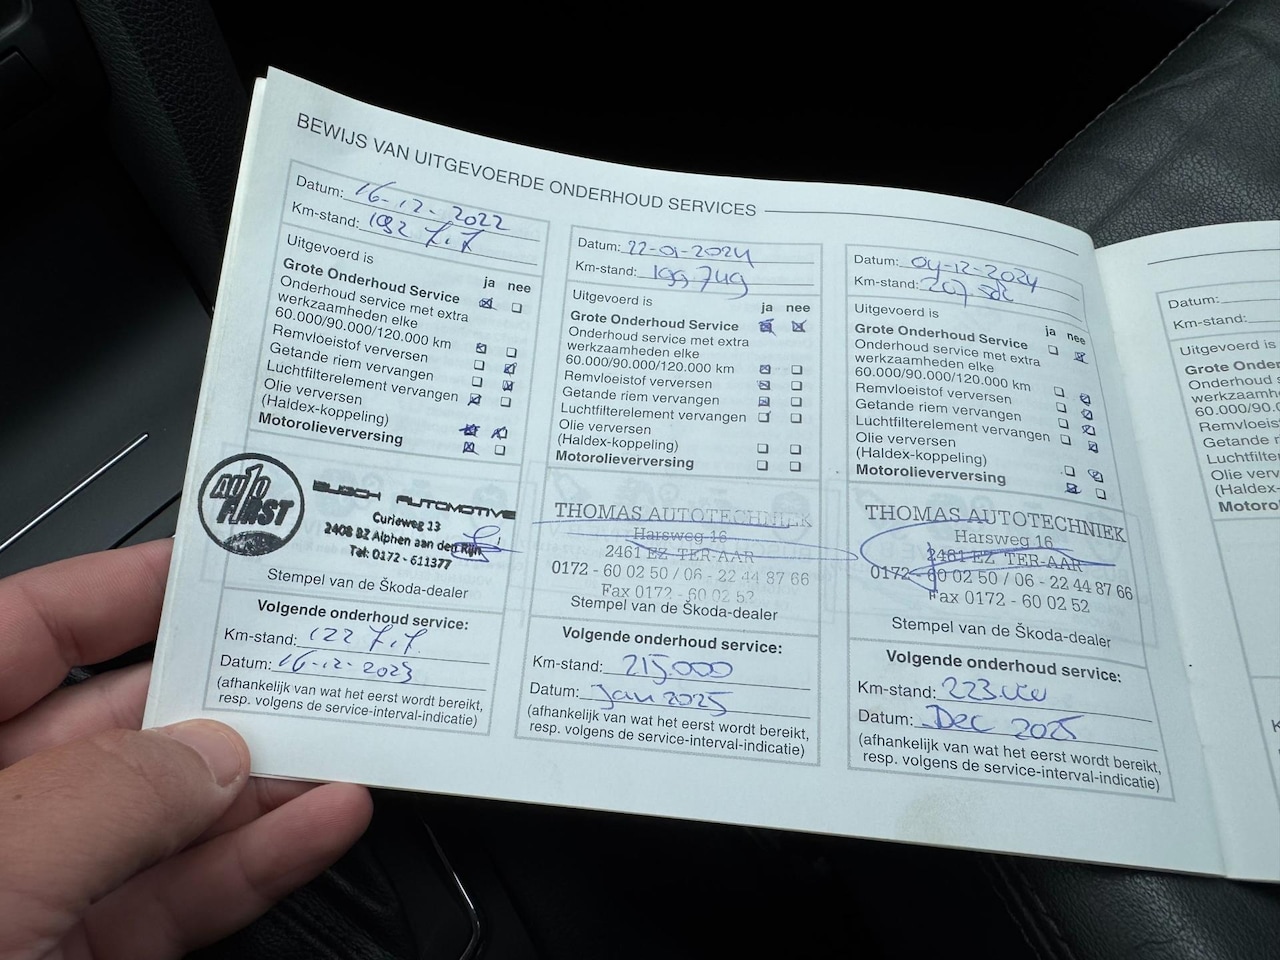 BEWIJS VAN UITGEVOERDE ONDERHOUD SERVICES
Datum: 16-12-2022
Km-stand: 192
Uitgevoerd is
ja nee
Grote Onderhoud Service
Onderhoud service met extra
werkzaamheden elke
60.000/90.000/120.000 km
Remvloeistof verversen
Getande riem vervangen
Luchtfilterelement vervangen
Olie verversen
(Haldex-koppeling)
Motorolieverversing
AUTO FIRST
BUSCH AUTOMOTIVE
Curieweg 13
2408 BZ Alphen aan den Rijn
Tel: 0172 - 611377
Stempel van de Škoda-dealer
Volgende onderhoud service:
Km-stand:
Datum: 16-12-2023
(afhankelijk van wat het eerst wordt bereikt,
resp. volgens de service-interval-indicatie)
Datum: 22-01-2024
Km-stand: 199 749
Uitgevoerd is
ja nee
Grote Onderhoud Service
Onderhoud service met extra
werkzaamheden elke
60.000/90.000/120.000 km
Remvloeistof verversen
Getande riem vervangen
Luchtfilterelement vervangen
Olie verversen
(Haldex-koppeling)
Motorolieverversing
THOMAS AUTOTECHNIEK
Harsweg 16
2461 EZ TER-AAR
0172 - 60 02 50 / 06 - 22 44 87 66
Fax 0172 - 60 02 52
Stempel van de Škoda-dealer
Volgende onderhoud service:
Km-stand: 215.000
Datum: Jan 2025
(afhankelijk van wat het eerst wordt bereikt,
resp. volgens de service-interval-indicatie)
Datum: 04-12-2024
Km-stand:
Uitgevoerd is
ja nee
Grote Onderhoud Service
Onderhoud service met extra
werkzaamheden elke
60.000/90.000/120.000 km
Remvloeistof verversen
Getande riem vervangen
Luchtfilterelement vervangen
Olie verversen
(Haldex-koppeling)
Motorolieverversing
THOMAS AUTOTECHNIEK
Harsweg 16
2461 EZ TER-AAR
0172 - 60 02 50 / 06 - 22 44 87 66
Fax 0172 - 60 02 52
Stempel van de Škoda-dealer
Volgende onderhoud service:
Km-stand:
Datum: Dec 2025
(afhankelijk van wat het eerst wordt bereikt,
resp. volgens de service-interval-indicatie)
Datum:
Km-stand:
Uitgevoerd is
Grote Onderhoud
Onderhoud
werkzaamheden
60.000/90.000
Olie
(Haldex-